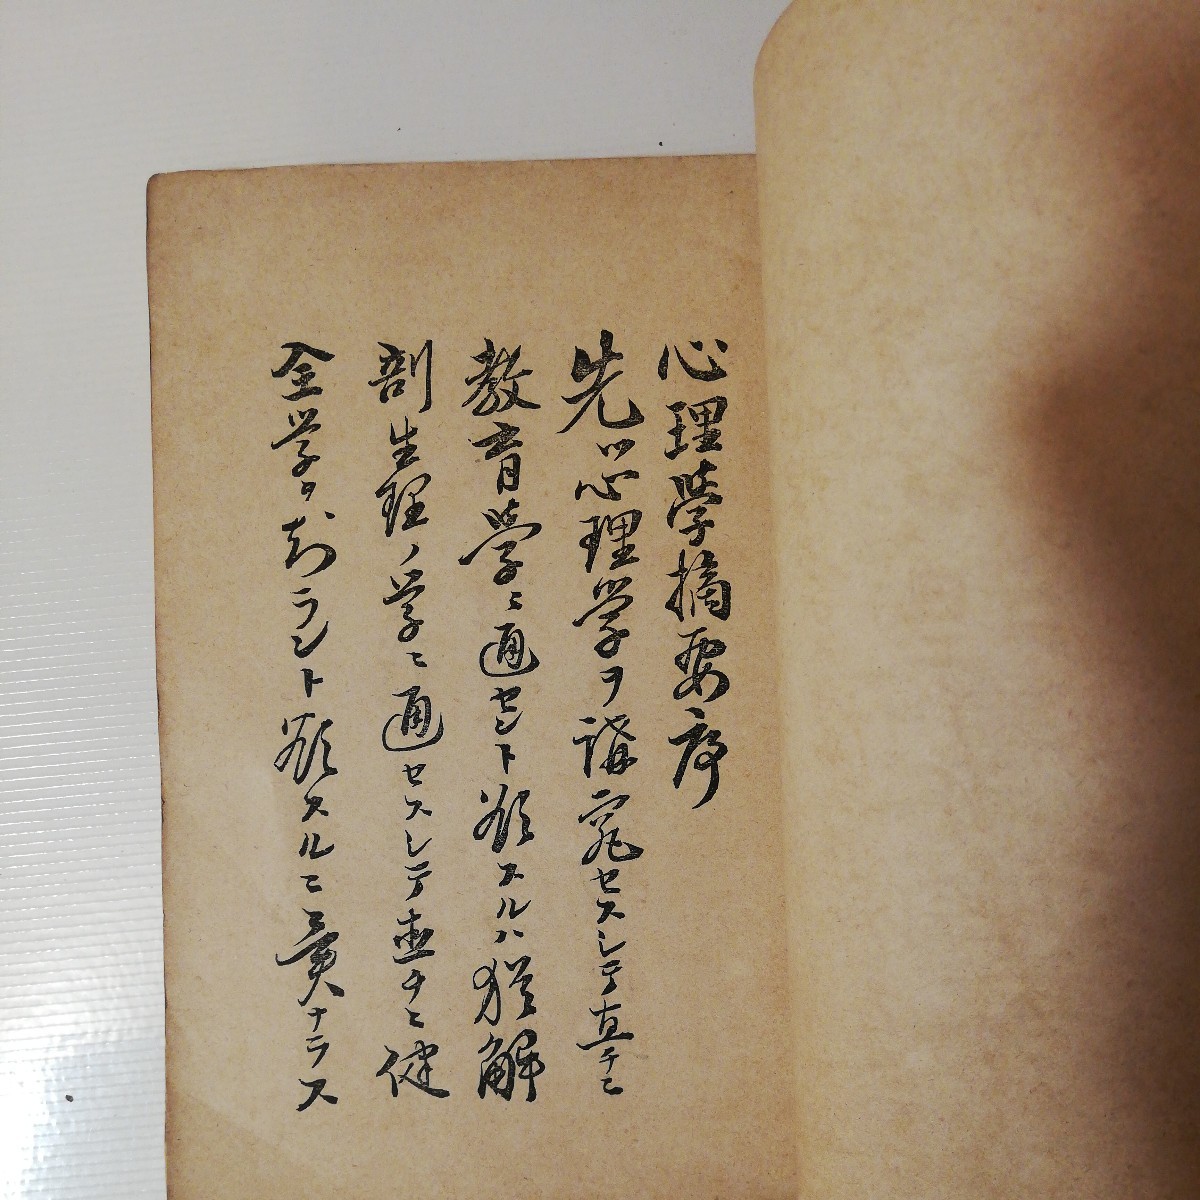 心理學摘要序
先ツ心理学ヲ講究セスシテ直チニ
教育學ニ通セント欲スルハ猶解
剖生理ノ学ニ通セスシテ直チニ健
全学ヲ知ラント欲スルニ異ナラス